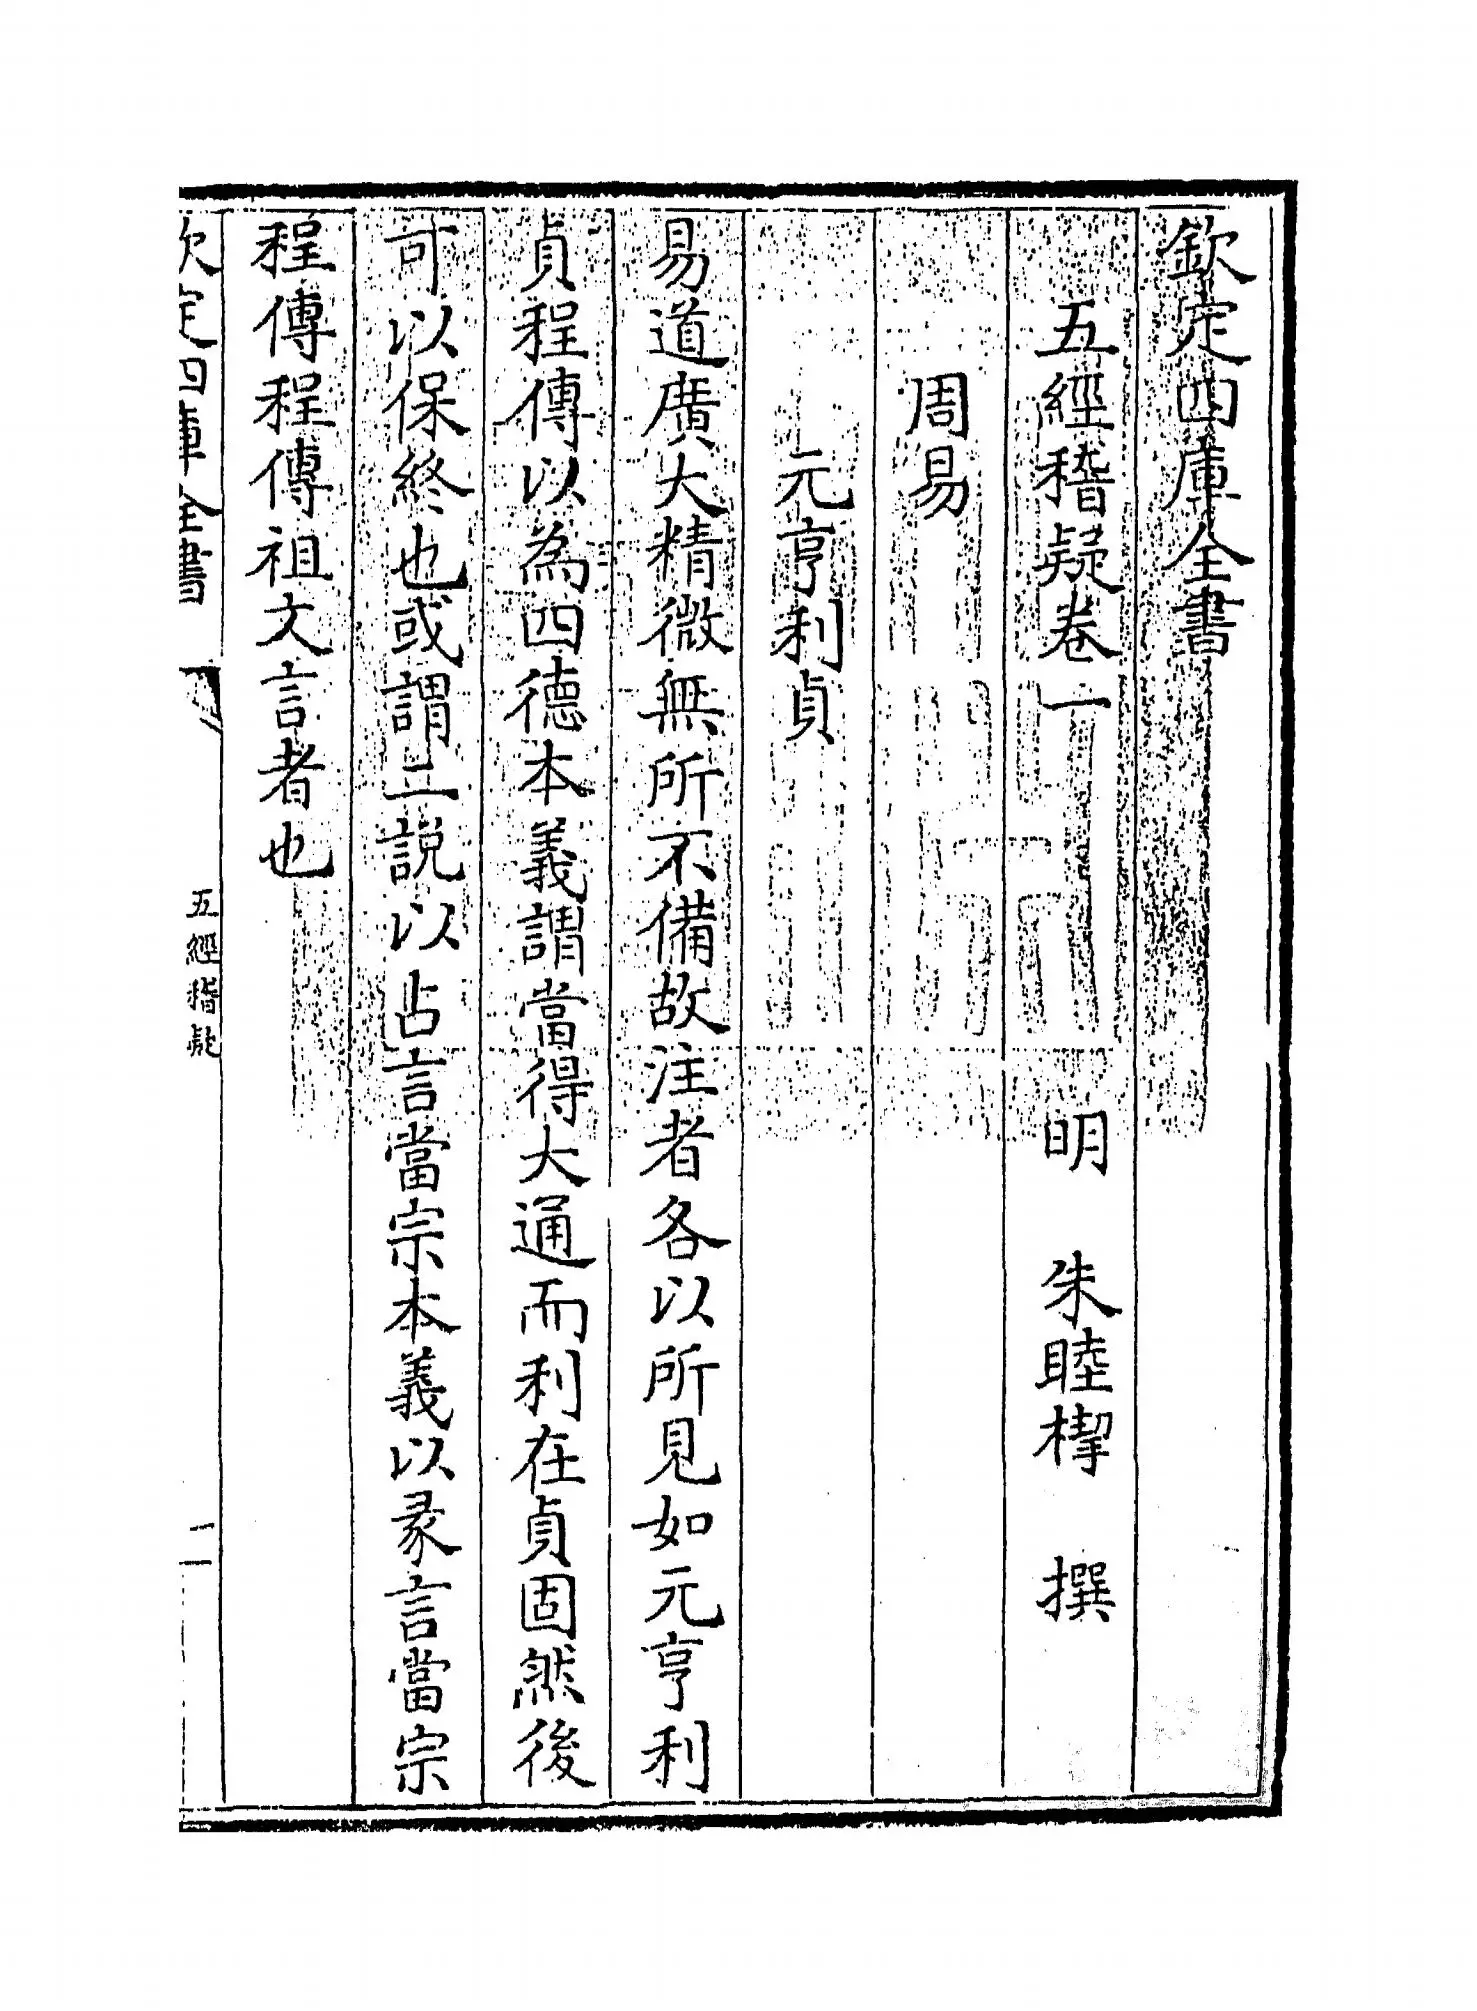 欽定四庫全書
五經稽疑卷一　明　朱睦㮮　撰
周易
元亨利貞
易道廣大精微無所不備故注者各以所見如元亨利
貞程傳以為四德本義謂當得大通而利在貞固然後
可以保終也或謂二說以占言當宗本義以彖言當宗
程傳程傳祖文言者也
欽定四庫全書
五經稽疑
二